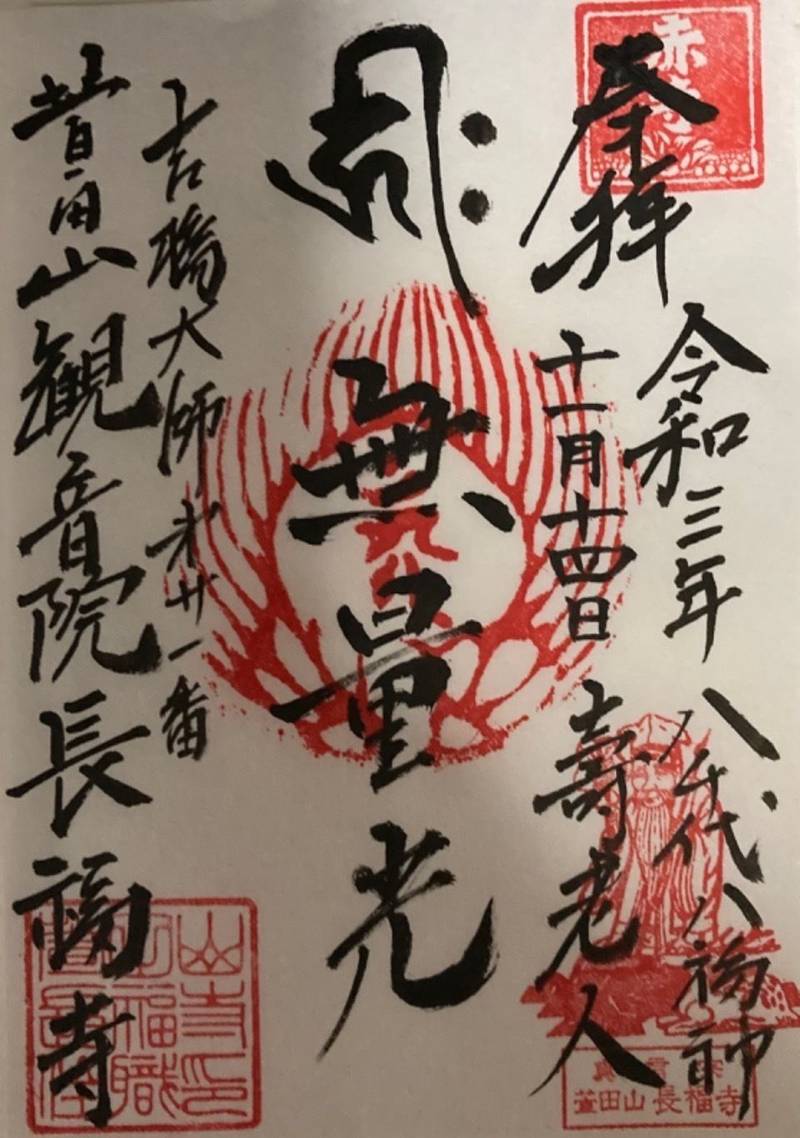 奉拝
令和三年
十一月十四日
八千代八福神
壽老人
無量光
吉橋大師第廿一番
萱田山観音院長福寺
赤寺
真言宗
萱田山長福寺